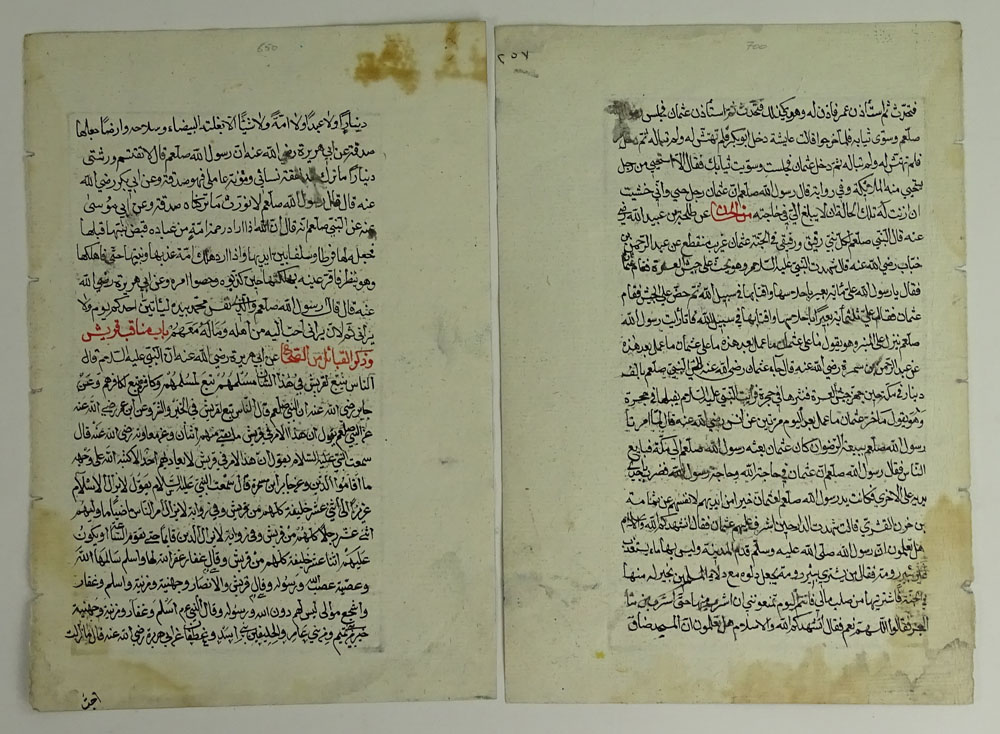 ٢٥٧
700
فتحدث ثم استأذن عمر فاذن له وهو كذلك فتحدث ثم استأذن عثمان فجلس
صلعم وسوى ثيابه فلما خرجوا قالت عايشة دخل ابو بكر فلم تهتش له ولم تباله ثم دخل عمر
فلم تهتش له ولم تباله ثم دخل عثمان فجلست وسويت ثيابك فقال الا استحيي من رجل
يستحيي منه الملايكة وفي رواية قال رسول الله صلعم ان عثمان رجل حيي واني خشيت
ان اذنت له تلك الحالة ان لا يبلغ الي في حاجته من الحسان عن طلحة بن عبيد الله رضي
عنه قال النبي صلعم لكل نبي رفيق ورفيقي في الجنة عثمان غريب منقطع عن عبد الرحمن بن
خباب رضي الله عنه قال شهدت النبي عليه السلام وهو يحث على جيش العسرة فقام عثمان
فقال يا رسول الله علي مائة بعير باحلاسها واقتابها في سبيل الله ثم حض على الجيش فقام
عثمان فقال علي مائتا بعير باحلاسها واقتابها في سبيل الله فانا رايت رسول الله
صلعم ينزل على المنبر وهو يقول ما على عثمان ما عمل بعد هذه ما على عثمان ما عمل بعد هذه
عن عبد الرحمن بن سمرة رضي الله عنه قال جاء عثمان رضي الله عنه الى النبي صلعم بالف
دينار في كمه حين جهز جيش العسرة فنثرها في حجره فرايت النبي عليه السلام يقلبها في حجره
وهو يقول ما ضر عثمان ما عمل بعد اليوم مرتين عن انس رضي الله عنه قال لما امرنا
رسول الله صلعم ببيعة الرضوان كان عثمان بعثه رسول الله صلعم الى مكة فبايع
الناس فقال رسول الله صلعم ان عثمان في حاجة الله وحاجة رسول الله فضرب باحدى
يديه على الاخرى فكانت يد رسول الله صلعم لعثمان خيرا من ايديهم لانفسهم عن ثمامة
بن حزن القشيري قال شهدت الدار حين اشرف عليهم عثمان فقال انشدكم الله والاسلام
هل تعلمون ان رسول الله صلى الله عليه وسلم قدم المدينة وليس بها ماء يستعذب
غير بير رومة فقال من يشتري بير رومة يجعل دلوه مع دلاء المسلمين بخير له منها
في الجنة فاشتريتها من صلب مالي فانتم اليوم تمنعونني ان اشرب منها حتى اشرب من ماء
البحر فقالوا اللهم نعم فقال انشدكم الله والاسلام هل تعلمون ان المسجد ضاق
650
دينارا ولا عبدا ولا امة ولا شيئا الا بغلته البيضاء وسلاحه وارضا جعلها
صدقة عن ابي هريرة رضي الله عنه ان رسول الله صلعم قال لا تقتسم ورثتي
دينارا ما تركت بعد نفقة نسائي ومؤنة عاملي فهو صدقة وعن ابي بكر رضي الله
عنه قال قال رسول الله صلعم لا نورث ما تركناه صدقة وعن ابي موسى
رضي عن النبي صلعم انه قال ان الله اذا اراد رحمة امة من عباده قبض نبيها قبلها
فجعل لها فرطا وسلفا بين ايديها واذا اراد هلاك امة عذبها ونبيها حي فاهلكها
وهو ينظر فاقر عينيه بهلكتها حين كذبوه وعصوا امره وعن ابي هريرة رضي الله
عنه قال قال رسول الله صلعم والذي نفس محمد بيده لياتين على احدكم يوم ولا
يراني ثم لان يراني احب اليه من اهله وماله معهم باب مناقب قريش
وذكر القبائل من الصحاح عن ابي هريرة رضي الله عنه ان النبي عليه السلام قال
الناس تبع لقريش في هذا الشان مسلمهم تبع لمسلمهم وكافرهم تبع لكافرهم وعن
جابر رضي الله عنه ان النبي صلعم قال الناس تبع لقريش في الخير والشر وعن ابن عمر رضي الله عنه
عن النبي صلعم يقول ان هذا الامر في قريش ما بقي منهم اثنان وعن معاوية رضي الله عنه قال
سمعت النبي عليه السلام يقول ان هذا الامر في قريش لا يعاديهم احد الا كبه الله على وجهه
ما اقاموا الدين وعن جابر بن سمرة قال سمعت النبي عليه السلام يقول لا يزال الاسلام
عزيزا الى اثني عشر خليفة كلهم من قريش وفي رواية لا يزال امر الناس ماضيا ما وليهم
اثني عشر رجلا كلهم من قريش وفي رواية لا يزال الدين قائما حتى تقوم الساعة او يكون
عليهم اثنا عشر خليفة كلهم من قريش وقال غفار غفر الله لها واسلم سالمها الله
وعصية عصت الله ورسوله وقال قريش والانصار وجهينة ومزينة واسلم وغفار
واشجع موالي ليس لهم مولى دون الله ورسوله وقال النبي صلعم اسلم وغفار ومزينة وجهينة
خير من بني تميم ومن بني عامر والحليفين بني اسد وغطفان عن ابي هريرة رضي الله عنه قال ما زلت
احب